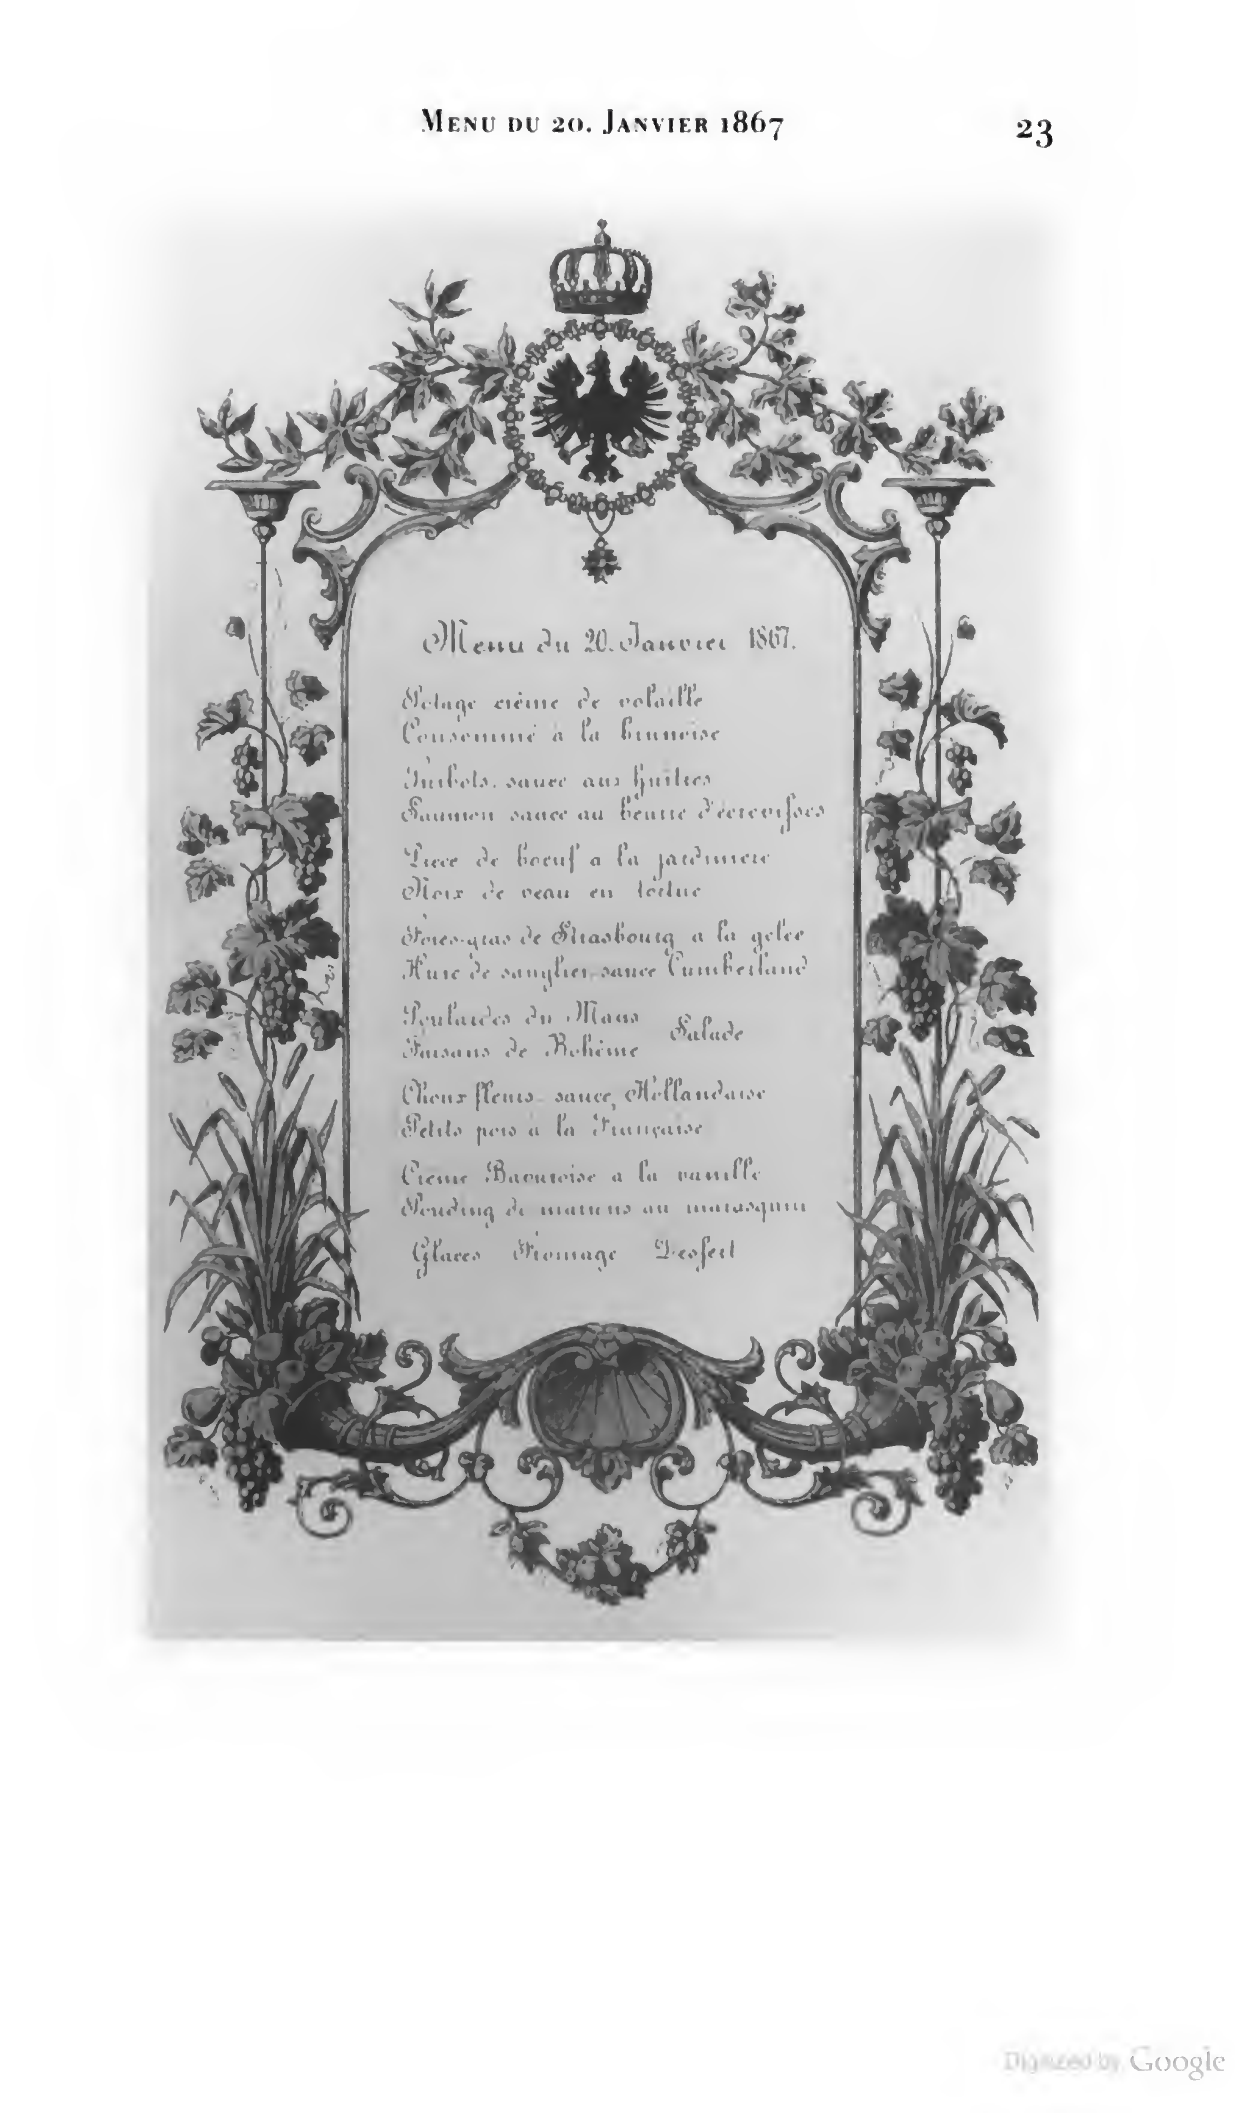 Menu du 20. Janvier 1867
23
Menu du 20. Janvier 1867.
Potage crème de volaille
Consommé à la brunoise
Turbots, sauce aux huîtres
Saumon sauce au beurre d'écrevisses
Pièce de boeuf a la jardiniere
Noix de veau en tortue
Foies-gras de Strasbourg a la gelée
Hure de sanglier, sauce Cumberland
Poulardes du Mans
Salade
Faisans de Bohême
Choux fleurs, sauce Hollandaise
Petits pois à la Française
Crême Bavaroise a la vanille
Pouding de marrons au marasquin
Glaces Fromage Dessert
Digitized by Google